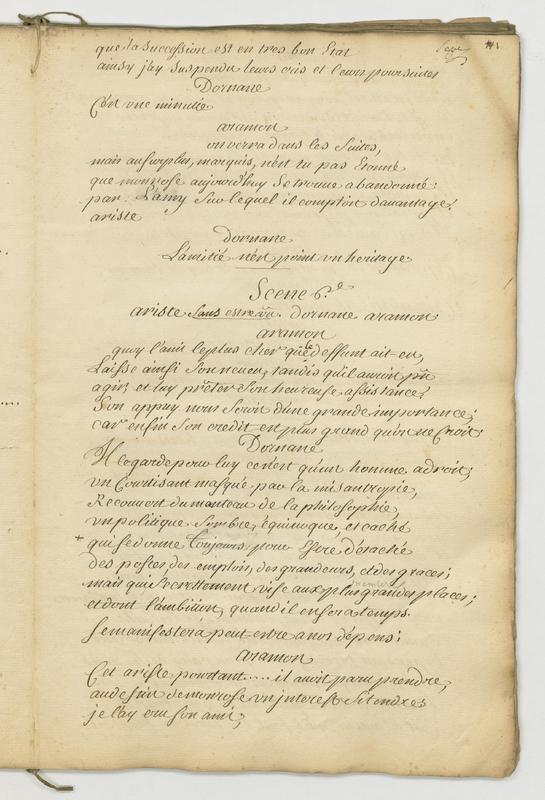 que la succession est en tres bon Etat
ainsy j'ay suspendu leurs cris et leurs poursuites
Dornane
C'est une minutie
aramon
on verra dans les suites,
mais au surplus, marquis, n'est tu pas Etonné
que monrose aujourd'huy se trouve abandonné
par L'amy sur lequel il comptoit davantage,
ariste
dornane
L'amitié n'est point un heritage
Scene 6.e
ariste sans estre vu. dornane aramon
aramon
quoy l'ami le plus cher que le deffunt ait eu,
Laisse ainsi son neveu, tandis qu'il auroit pu
agir, et luy prêter son heureuse assistance,
Son appuy nous seroit d'une grande importance;
car enfin son credit est plus grand qu'on ne croit;
Dornane
Il le garde pour luy ce n'est qu'un homme adroit;
un Courtisant masqué par la misantropie,
Recouvert du manteau de la philosophie,
un politique sombre, équivoque, et caché
+ qui se donne toujours pour Estre détaché
des postes, des emplois, des grandeurs, et des graces;
mais qui secrettement vise aux plus grandes places;
et dont l'ambition, quand il en sera temps.
Se manifestera peut-estre a nos dépens;
aramon
Cet ariste pourtant.... il avoit paru prendre,
au destin de monrose un interest si tendre,
je l'ay cru son ami;